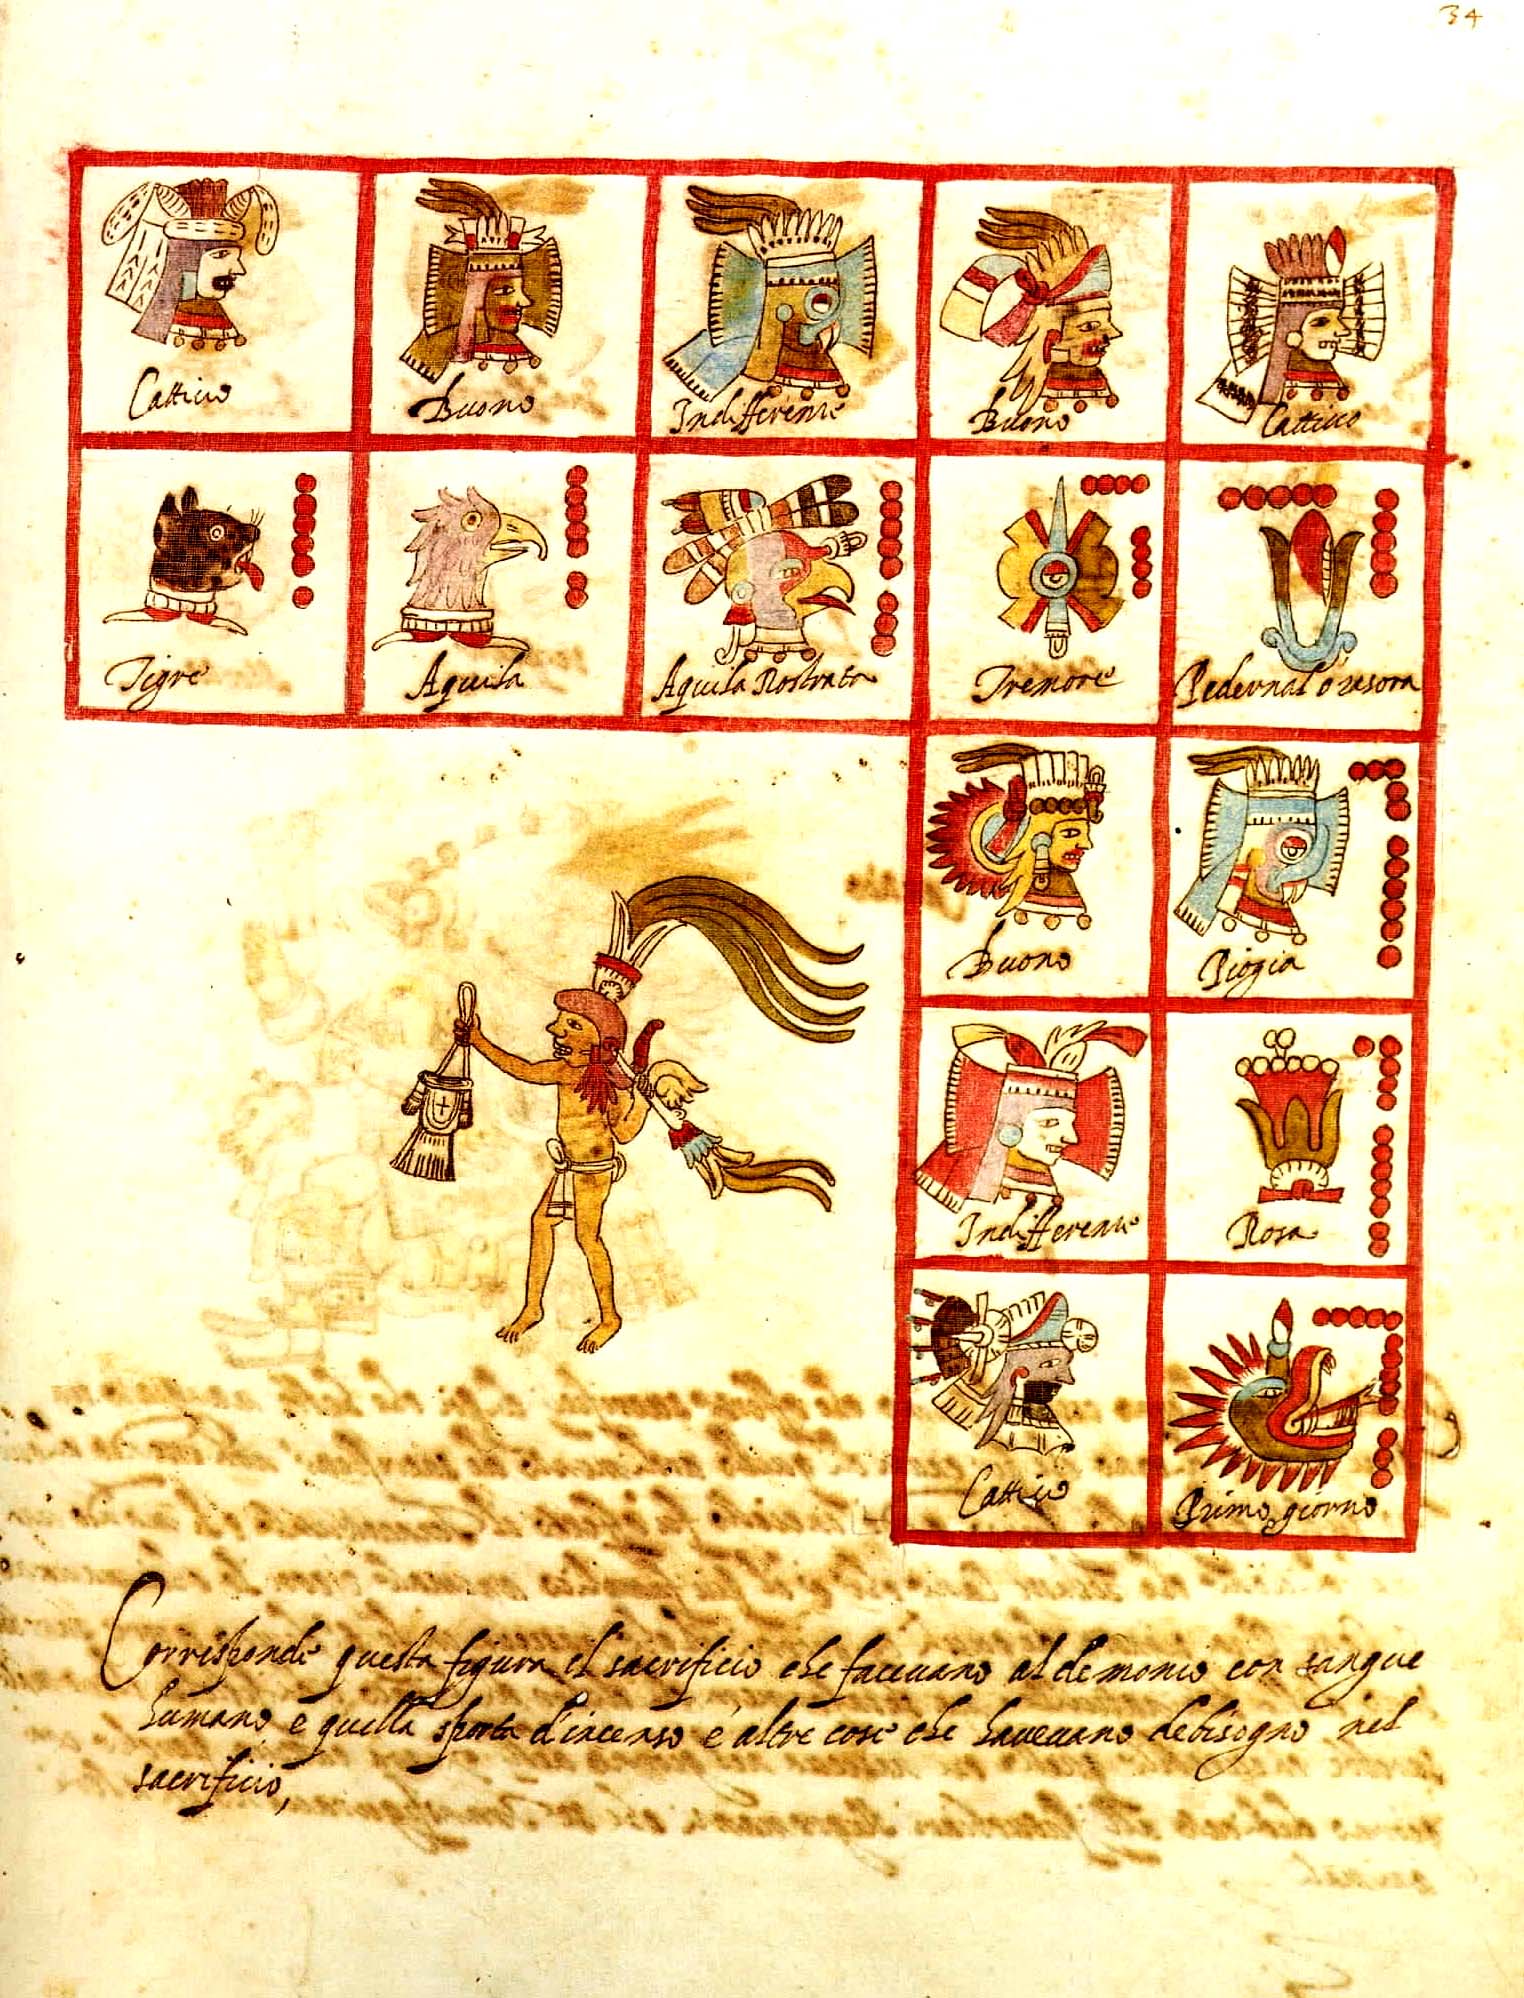 34
Cattiuo
Buono
Indifferente
Buono
Cattiuo
Tigre
Aquila
Aquila Rostrata
Tremore
Pedernal ó resora
Buono
Piogia
Indifferente
Rosa
Cattiuo
Primo giorno
Corrisponde questa figura il sacrificio che faceuano al demonio con sangue
humano e quella sporta d'incenso e altre cose che haueuano debisogno nel
sacrificio,